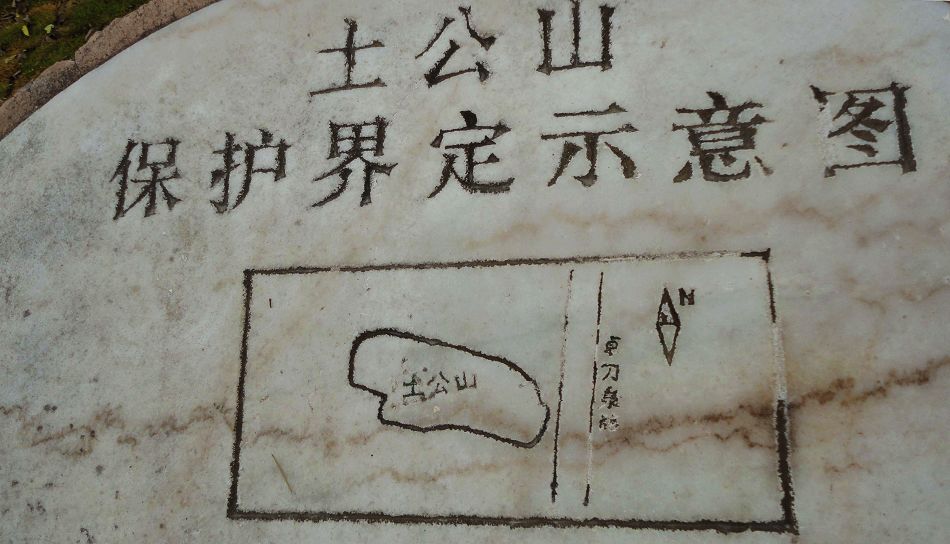 土公山
保护界定示意图
N
土公山
卓刀泉路